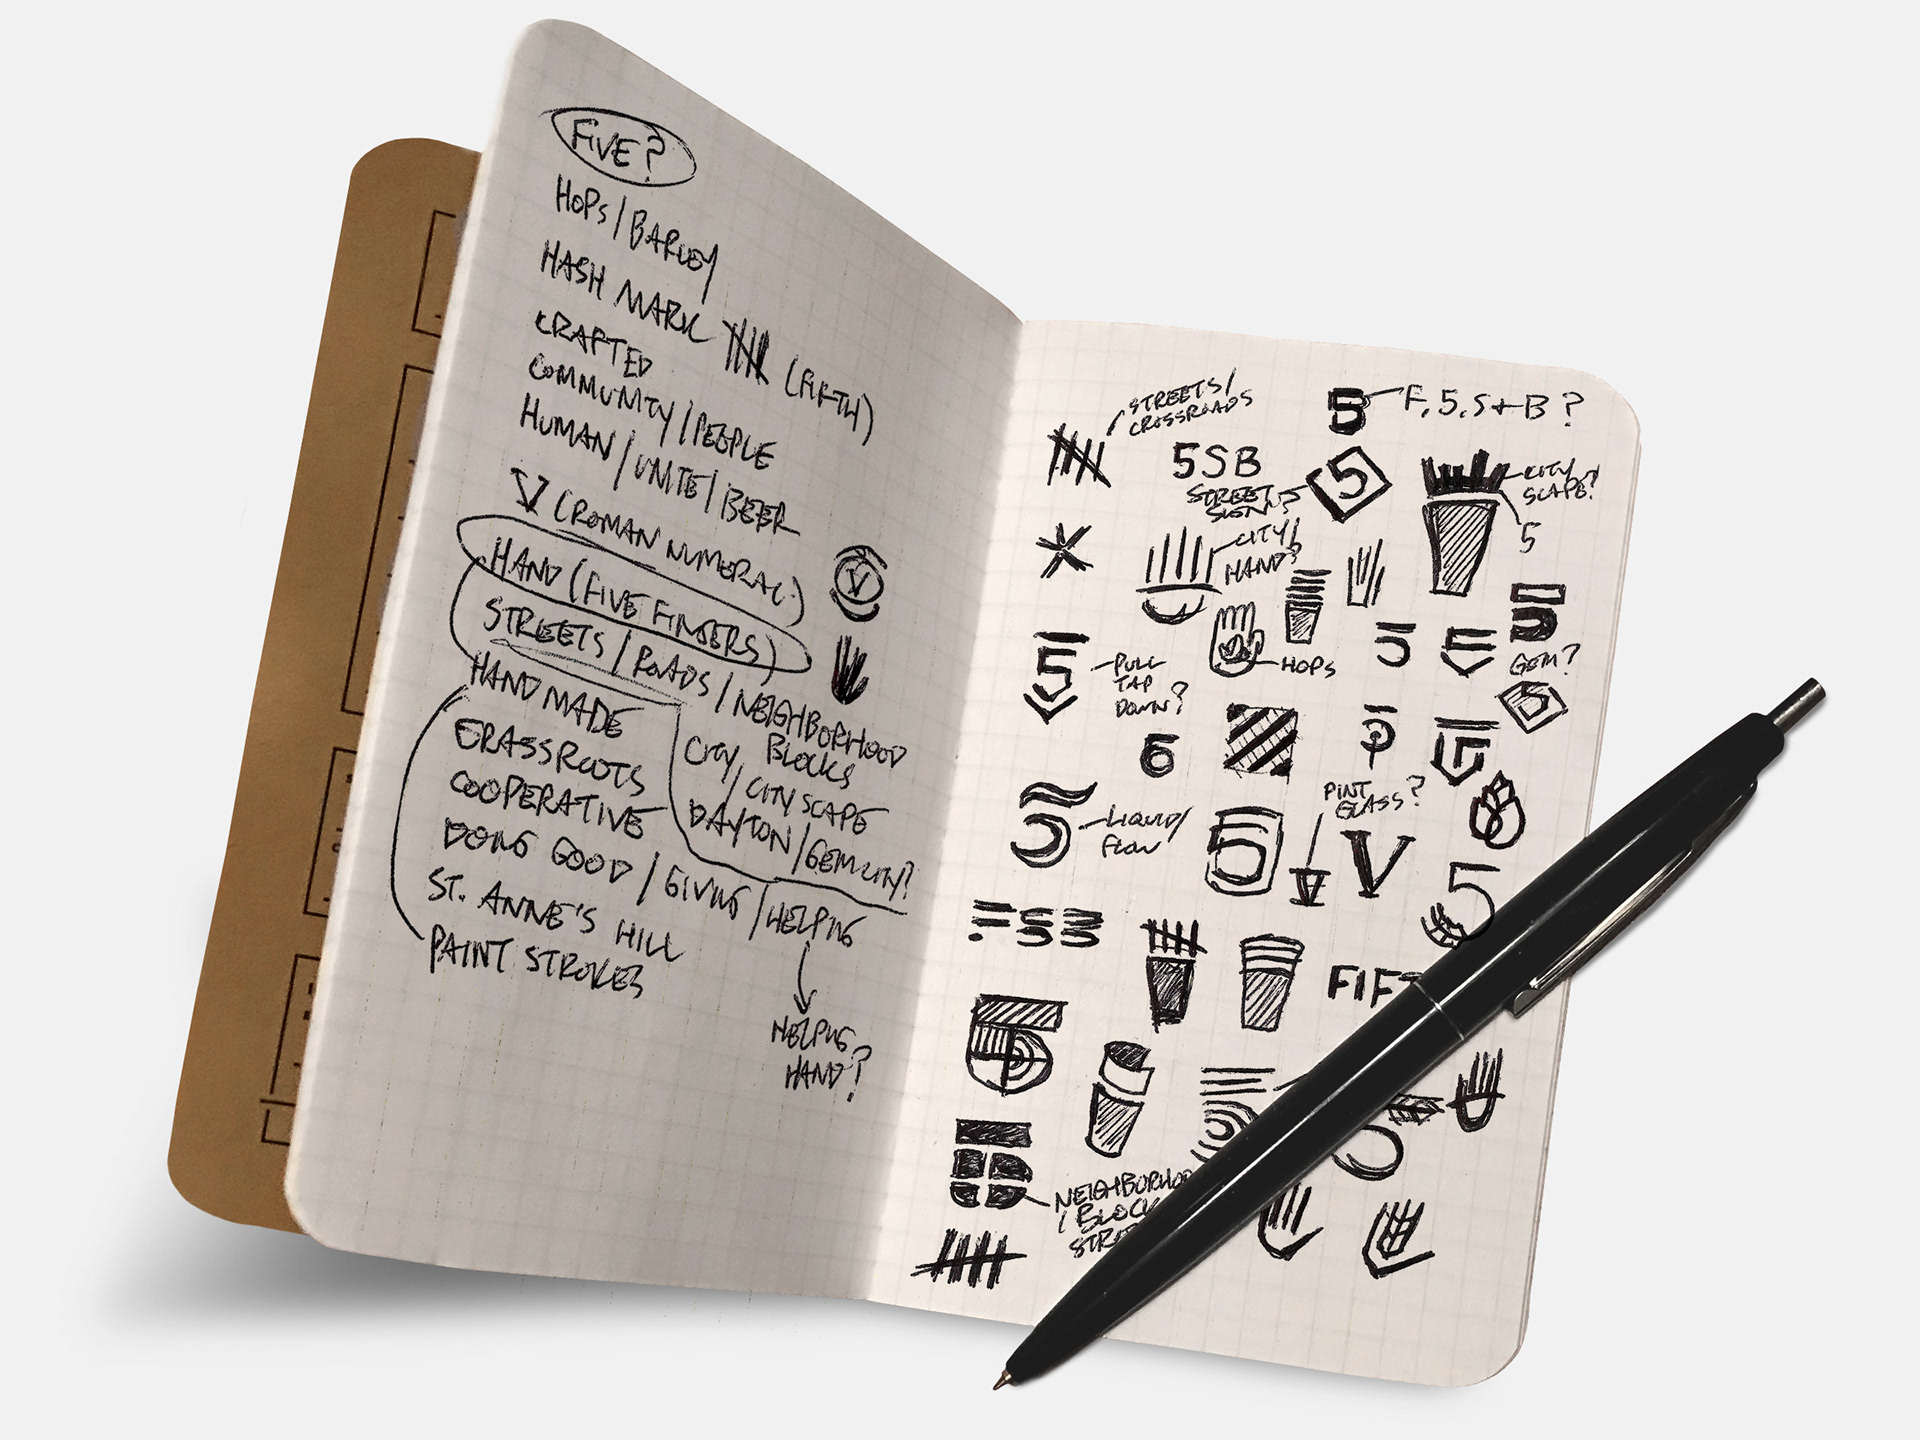 FIVE?
HOPS / BARLEY
HASH MARK (FIFTH)
CRAFTED
COMMUNITY / PEOPLE
HUMAN / UNITE / BEER
V (ROMAN NUMERAL)
V
HAND (FIVE FINGERS)
STREETS / ROADS / NEIGHBORHOOD
BLOCKS
HANDMADE
CITY / CITYSCAPE
GRASSROOTS
DAYTON / GEM CITY?
COOPERATIVE
DOING GOOD / GIVING / HELPING
ST. ANNE'S HILL
PAINT STROKES
HELPING
HAND?
STREETS /
CROSSROADS
5
F, 5, S + B ?
5SB
STREET
SIGN?
5
CITY
SCAPE?
5
CITY /
HAND?
HOPS
5
5
5
5
GEM?
5
PULL
TAP
DOWN?
6
5
PINT
GLASS?
5
LIQUID /
FLOW
5
V
V
5
FSB
FIFT
5
5
5
NEIGHBORHOO
/ BLOCK
STR